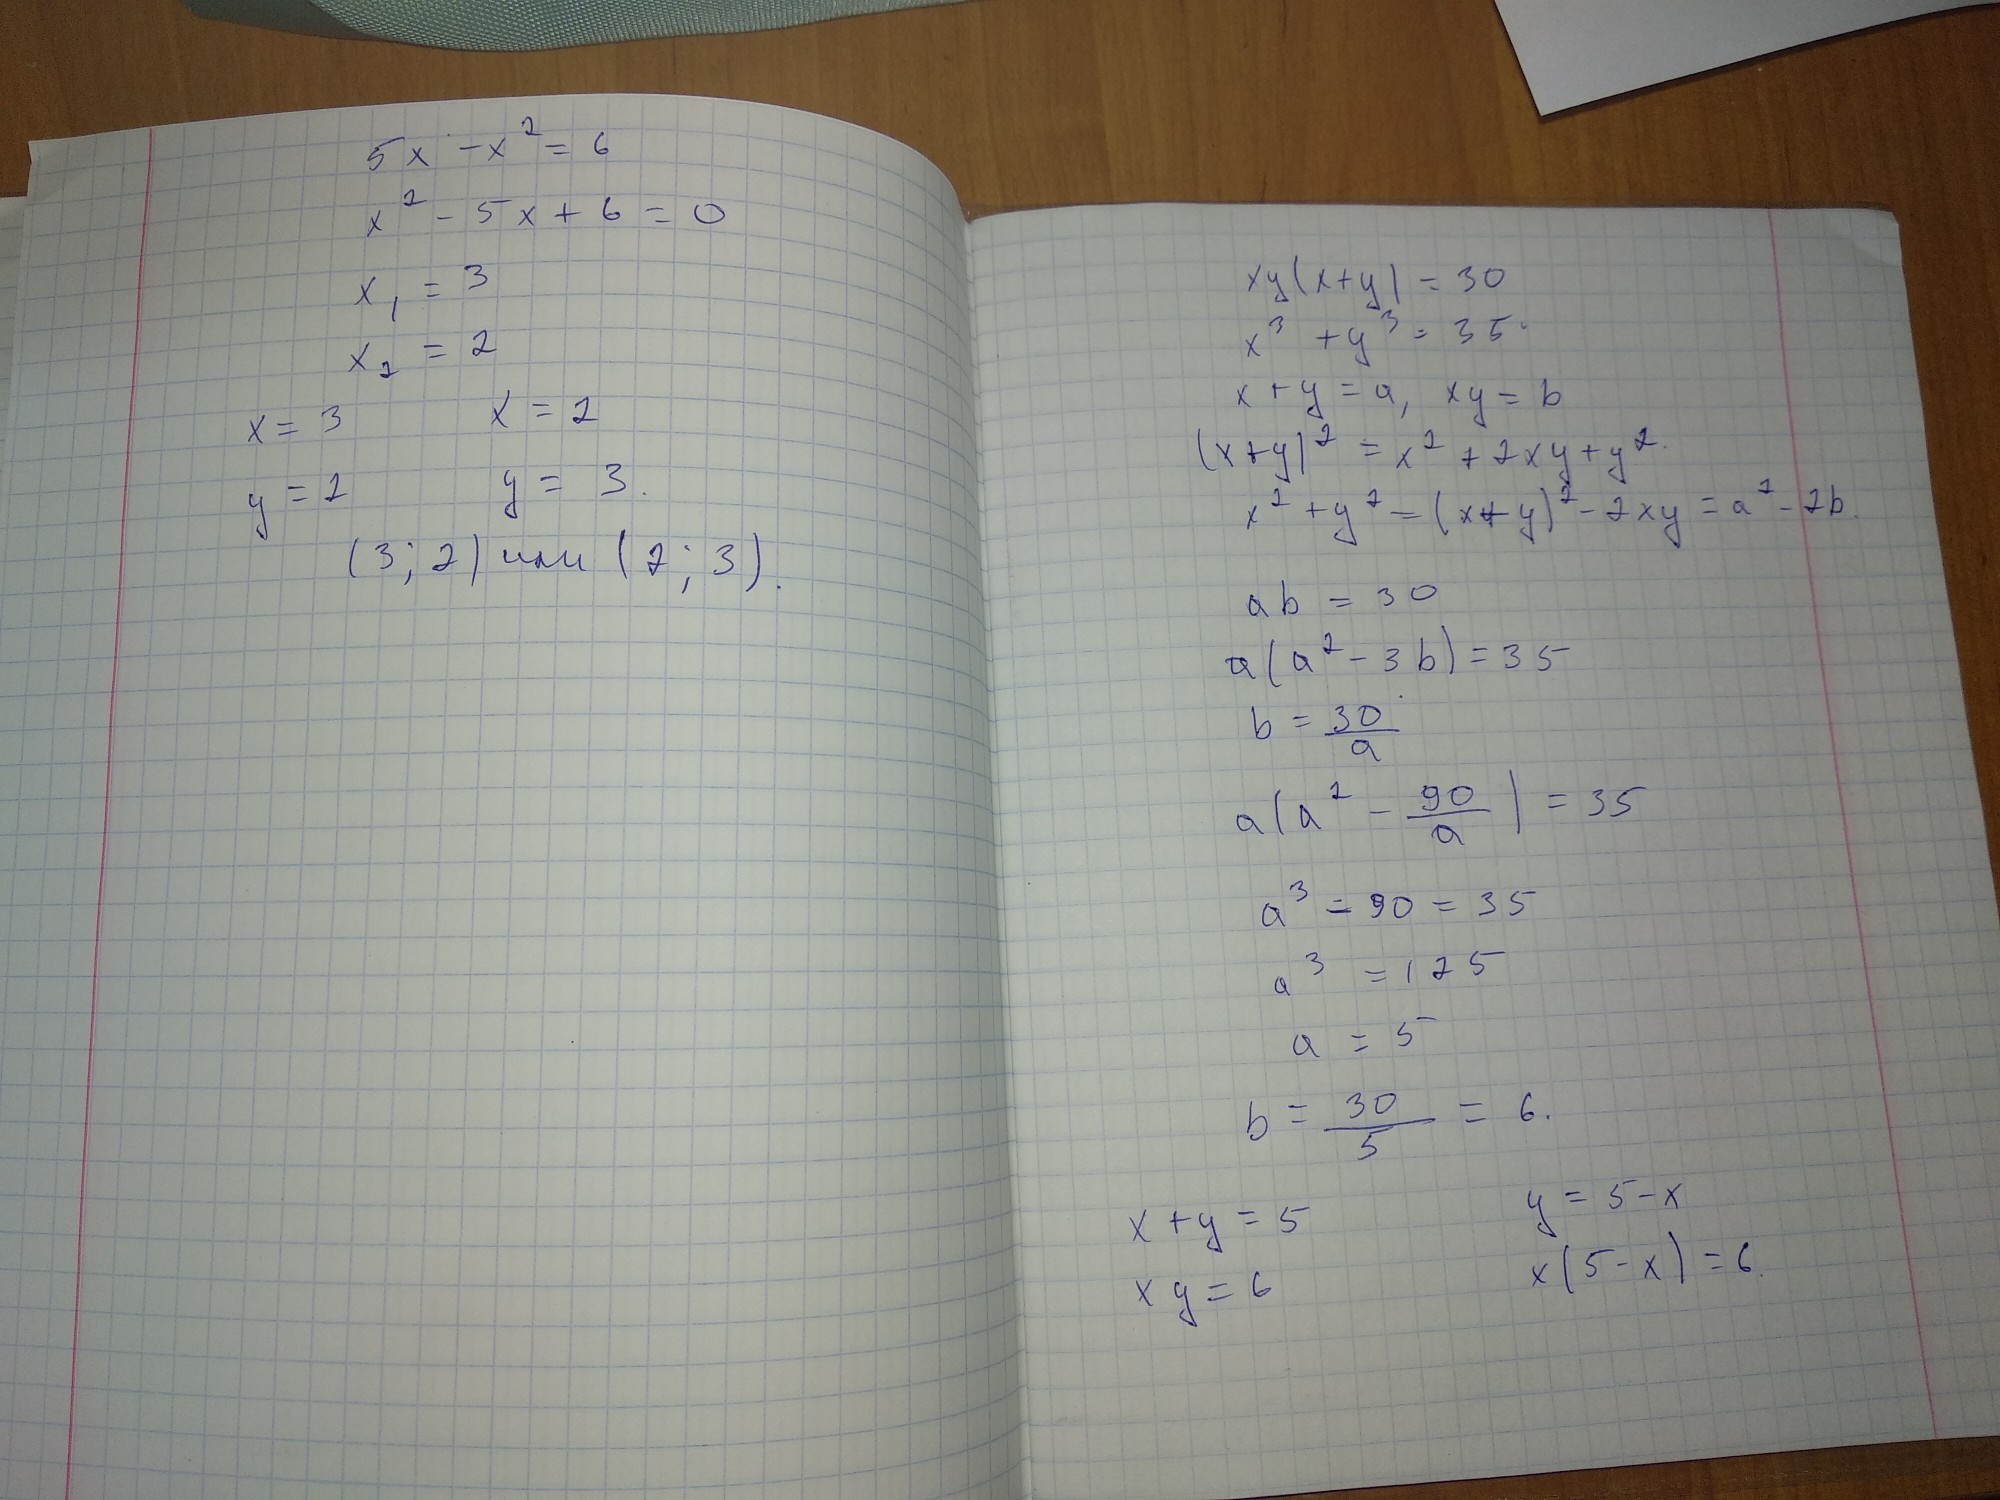 5x - x² = 6
x² - 5x + 6 = 0
x₁ = 3
x₂ = 2
x = 3 x = 2
y = 2 y = 3.
(3; 2) или (2; 3).
xy(x+y) = 30
x³ + y³ = 35.
x + y = a, xy = b
(x+y)² = x² + 2xy + y².
x² + y² = (x+y)² - 2xy = a² - 2b.
ab = 30
a(a² - 3b) = 35
b = 30/a
a(a² - 90/a) = 35
a³ = 90 = 35
a³ = 125
a = 5
b = 30/5 = 6.
x + y = 5 y = 5 - x
xy = 6 x(5 - x) = 6.